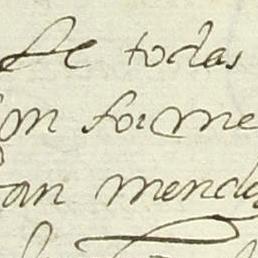 de todas
in forme
an mende